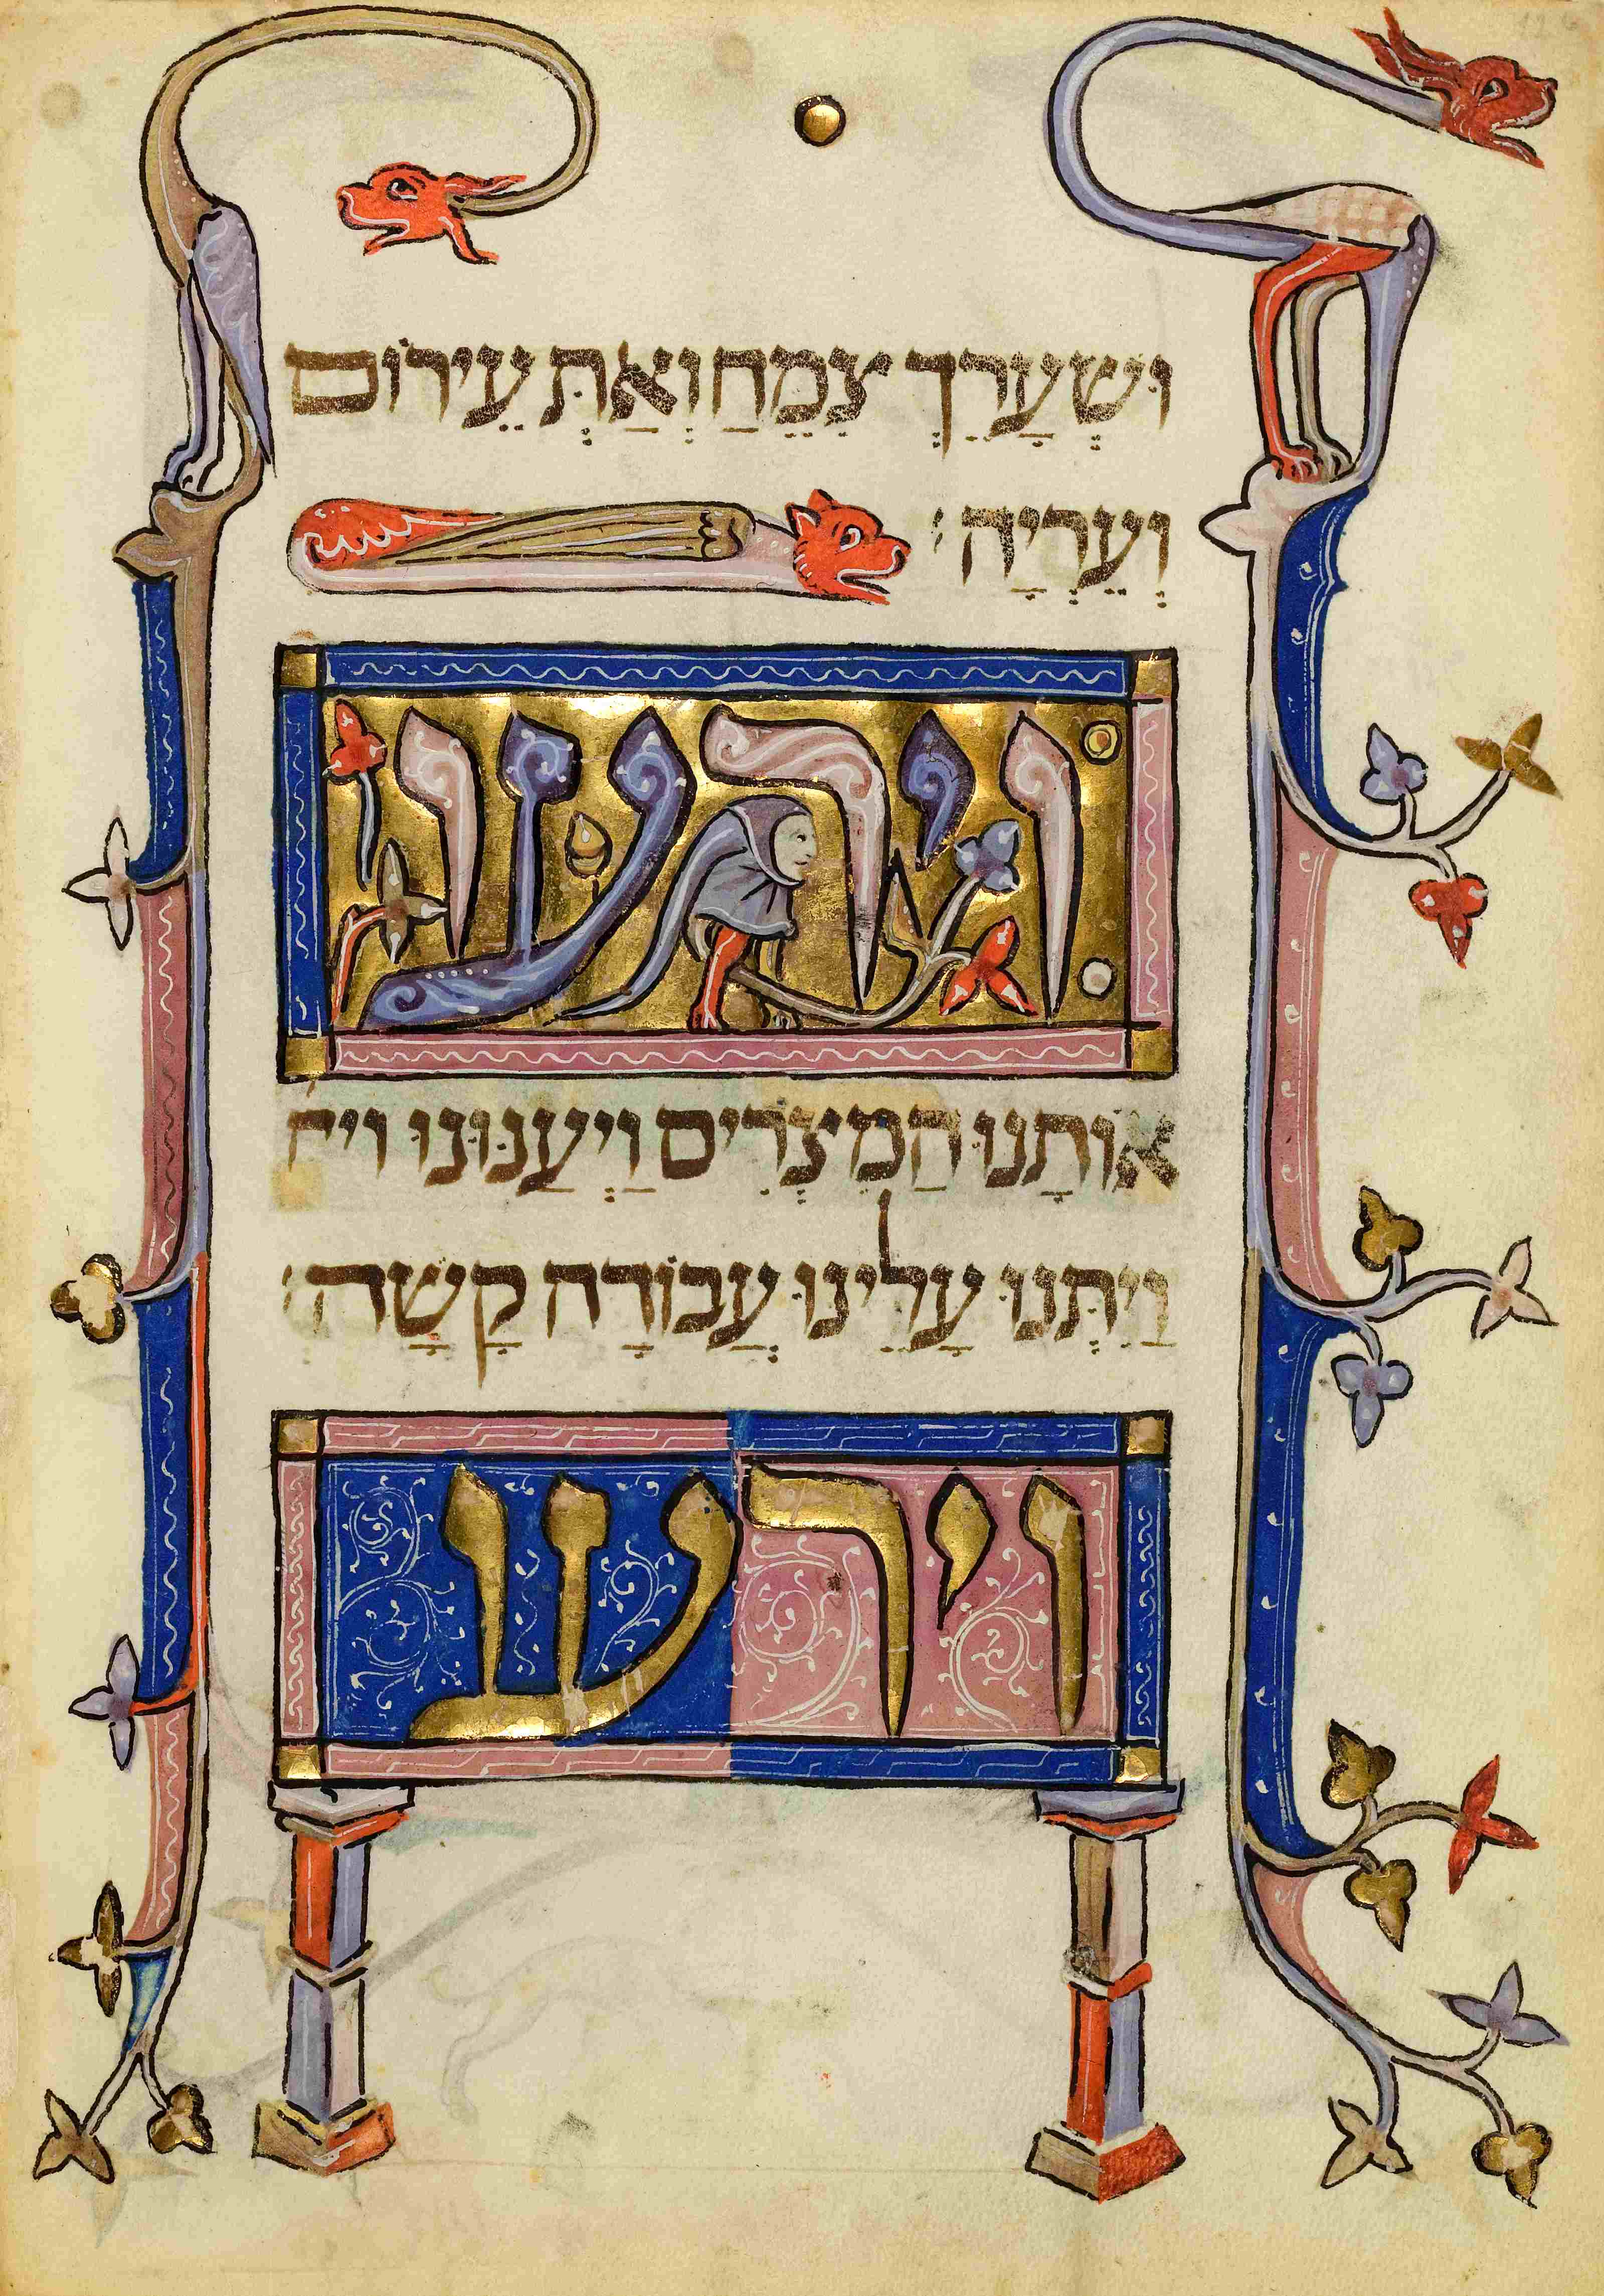 וּשְׂעָרֵךְ צִמֵּחַ וְאַתְּ עֵירוֹם
וְעֶרְיָה׃
וירעו
אוֹתָנוּ הַמִצְרִים וַיְעַנוּנוּ וית
וַיִתְּנוּ עָלֵינוּ עֲבוֹדָה קָשָׁה׃
וירעו